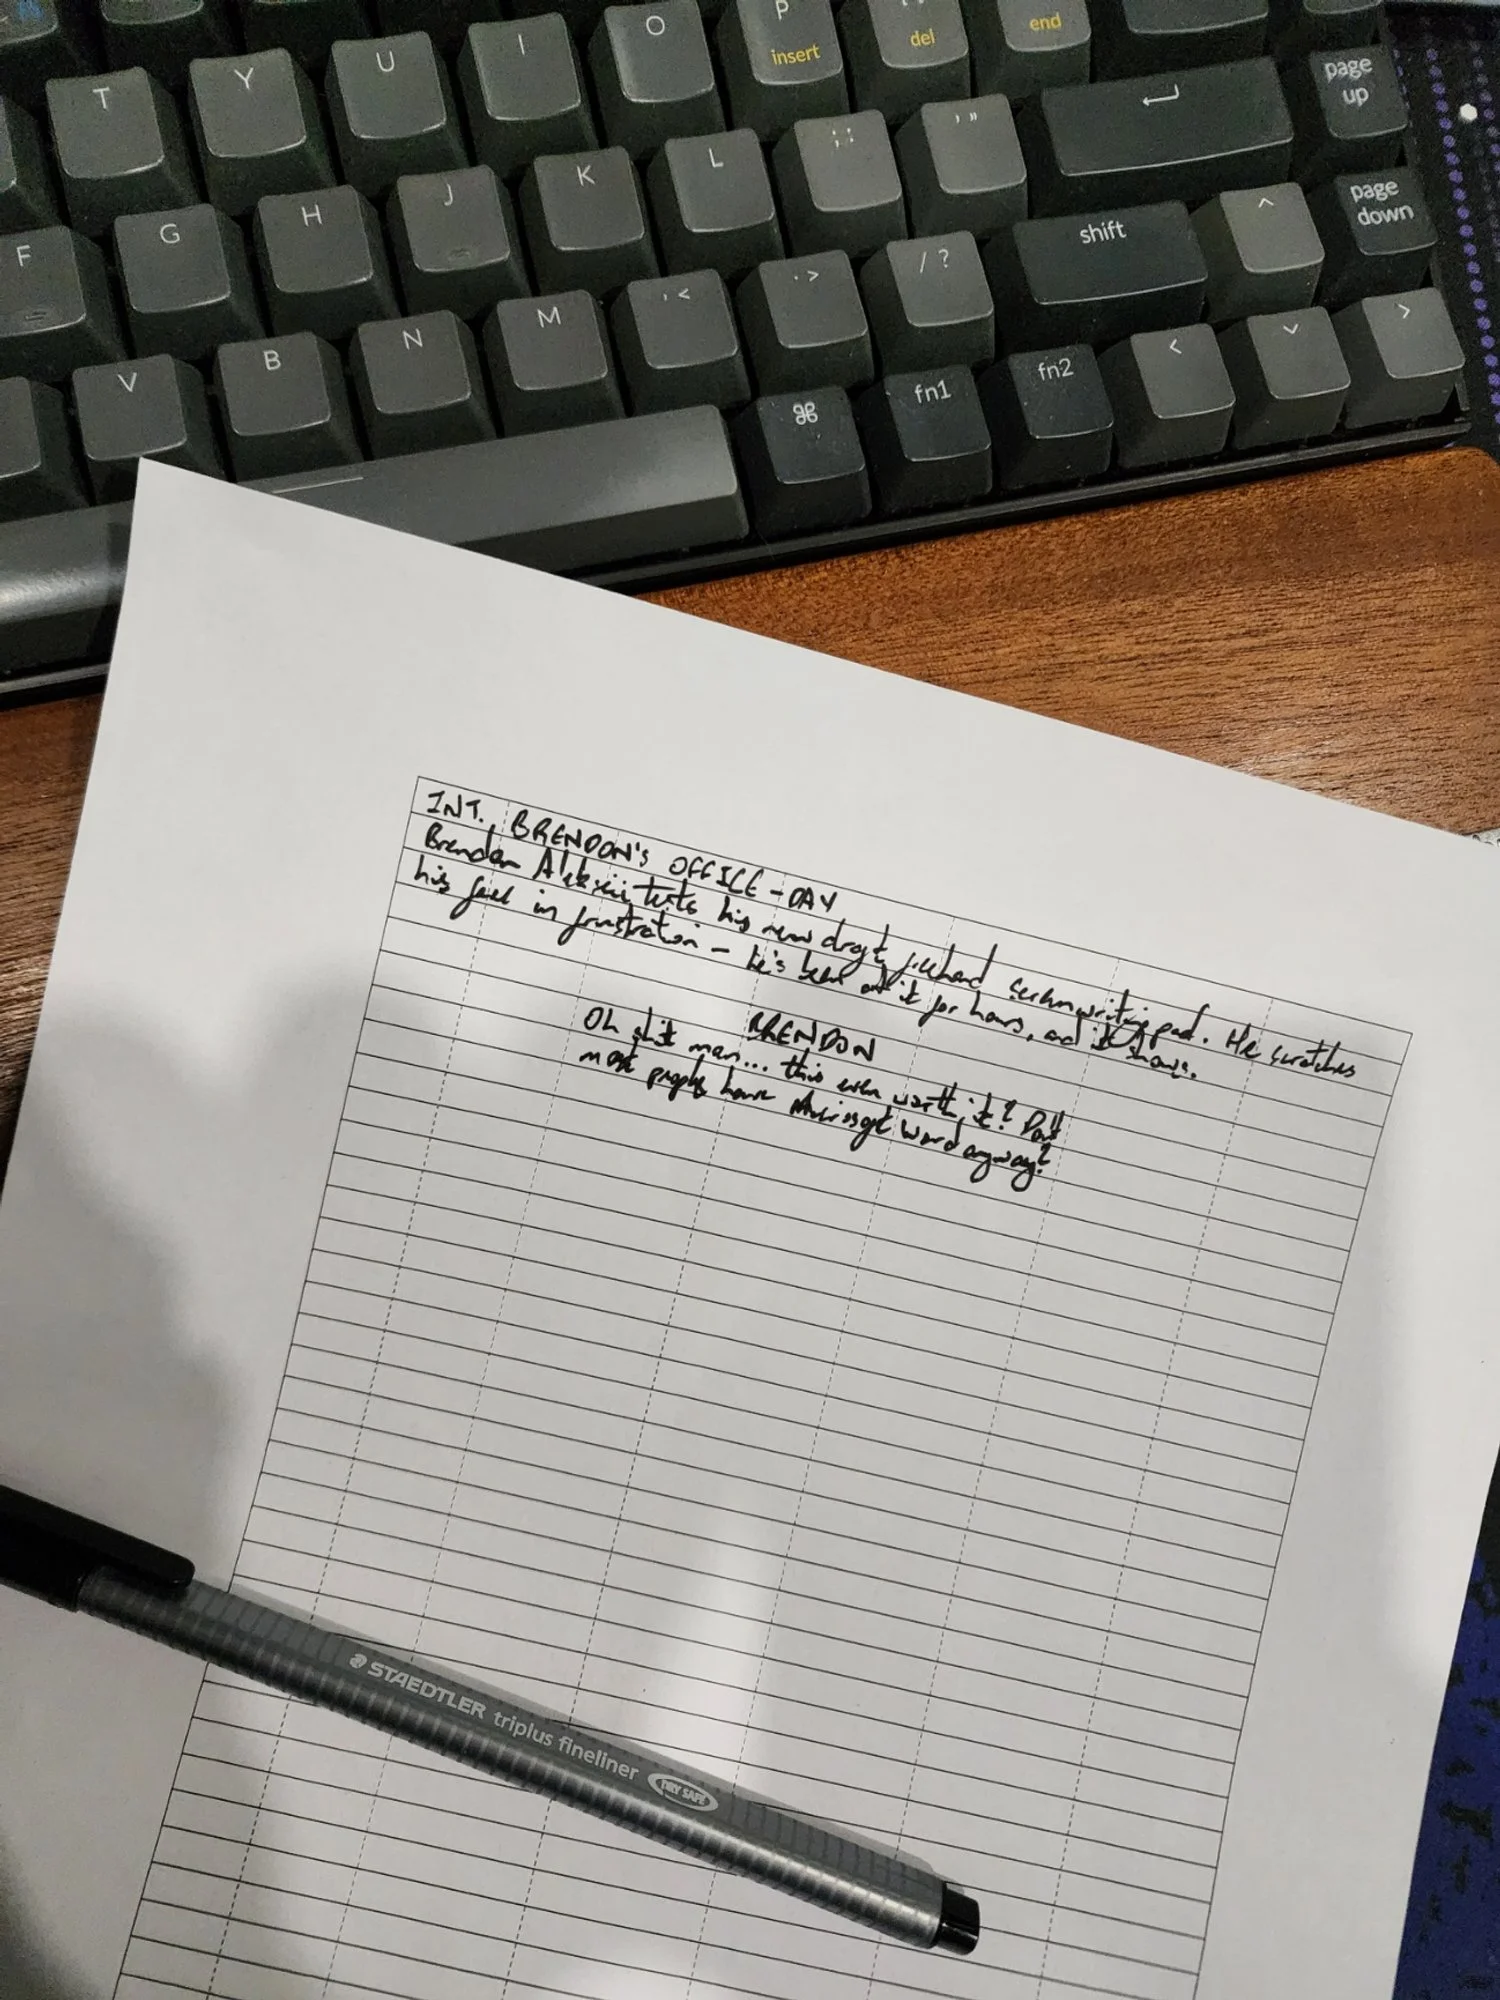 P
insert
del
end
T
Y
U
I
O
page
up
F
G
H
J
K
L
; :
' "
page
down
V
B
N
M
, <
. >
/ ?
shift
^
⌘
fn1
fn2
<
>
INT. BRENDON'S OFFICE - DAY
Brendon tests his new draft screenwriting pad. He scratches
his face in frustration - he's been at it for hours, and it shows.
BRENDON
Oh shit man... this even worth it? Don't
most people have Microsoft Word anyway?
STAEDTLER triplus fineliner DRY SAFE